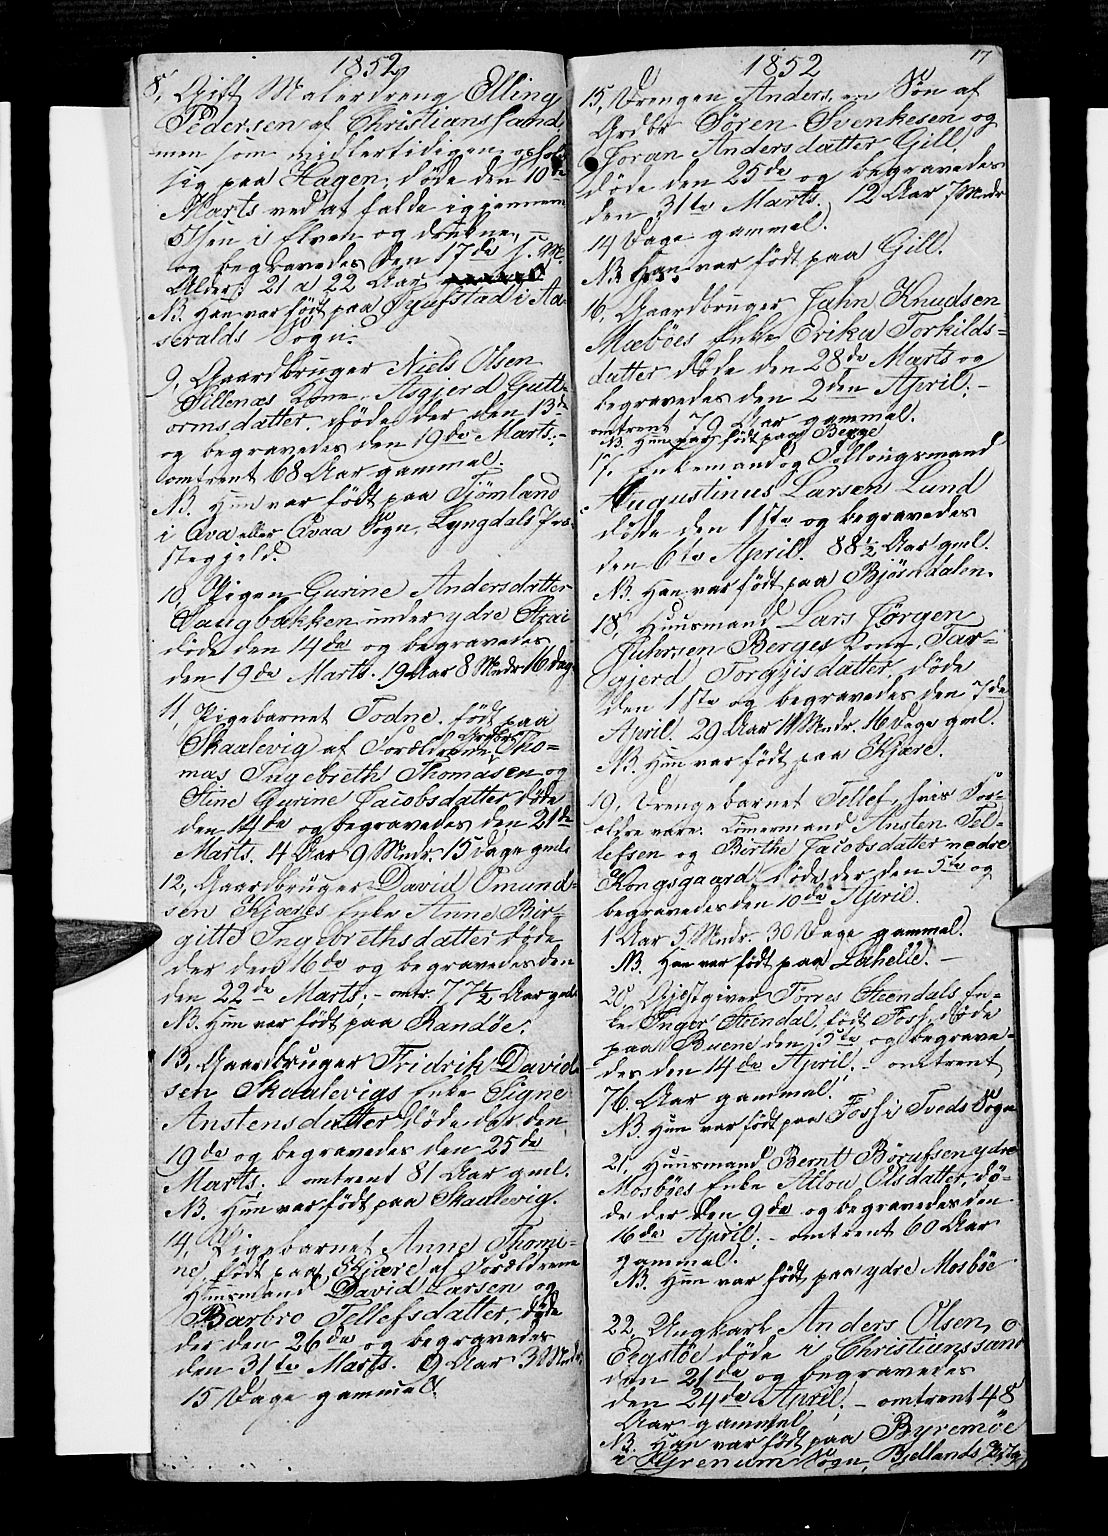 1852
8, Gift Malerdreng Elling
Pedersen af Christianssand,
men som midlertidigen opholdt
sig paa Hagen, døde den 10de
Marts ved at falde igjennem
Isen i Elven og drukne,
og begravedes den 17de s. M.
Alder: 21 a 22 Aar
NB. Han var født paa i Aa-
seralds Sogn.
9, Gaardbruger Niels Olsen
Tillenæs Kone, Asgjerd Gutt-
ormsdatter, døde der den 13de
og begravedes den 19de Marts. -
omtrent 68 Aar gammel.
NB. Hun var født paa Tjömland
i Qvaa eller Qvaas Sogn, Lyngdals Præ-
stegjeld.
10, Pigen Gurine Andersdatter
Saugbakken under ydre Strai
døde den 14de og begravedes
den 19de Marts. 19 Aar 8 Mndr 16 Dage
11, Pigebarnet Todne, født paa
Skaalevig af Forældrene Tho-
mas Ingebreth Thomasen og
Stine Gurine Jacobsdatter, døde
den 14de og begravedes den 21de
Marts. 4 Aar 9 Mndr. 15 Dage gml.
12, Gaardbruger David Omund-
sen Kjæres Enke Anne Bir-
gitte Ingebrethsdatter døde
der den 16de og begravedes den
den 22de Marts. - omtr. 77½ Aar gml.
NB. Hun var født paa Randöe.
13, Gaardbruger Fridrik David-
sen Skaalevigs Enke Signe
Anstensdatter, døde der den
19de og begravedes den 25de
Marts. omtrent 81 Aar gml.
NB. Hun var født paa Skaalevig.
14, Pigebarnet Anne Thomi-
ne, født paa Kjære af Forældrene
Huusmand David Larsen og
Barbro Tellefsdatter, døde
der den 26de og begravedes
den 31te Marts. 9 Aar 3 Mndr
15 Dage gammel.
1852
17
15, Drengen Anders, en Søn af
Grdbr Søren Svenkesen og
Joran Andersdatter Gill,
døde den 25de og begravedes
den 31te Marts. 12 Aar 7 Mndr
14 Dage gammel.
NB. Han var født paa Gill.
16, Gaardbruger Jahn Knudsen
Mæböes Enke Erika Torkilds-
datter døde den 28de Marts og
begravedes den 2den April. -
omtrent 79 Aar gammel.
NB. Hun var født paa Berge
17, Enkemand og Follougsmand
Augustinus Larsen Lund
døde den 1ste og begravedes
den 6te April. 88½ Aar gml.
NB. Han var født paa Björndalen.
18, Huusmand Lars Jörgen
Berges Kone, Tar-
gjerd Torgjisdatter, døde
den 1ste og begravedes den 7de
April. 29 Aar 11 Mndr. 16 Dage gml.
NB. Hun var født paa Kjære.
19, Drengebarnet Tellef, hvis For-
ældre vare: Tömermand Ansten Tel-
lefsen og Birthe Jacobsdatter nedre
Kongsgaard, døde der den 5te og
begravedes den 10de April.
1 Aar 5 Mndr. 30 Dage gammel.
NB. Han var født paa Lahelle. -
20, Gjestgiver Torres Steendals En-
ke Inger Steendal, født Foss, døde
paa Buene den 5te og begrave-
des den 14de April. - omtrent
76 Aar gammel.
NB. Hun var født paa Foss i Tveds Sogn
21, Huusmand Bernt Börufssen ydre
Mosböes Enke Atlou Olsdatter, dö-
de der den 9de og begravedes den
16de April. - omtrent 60 Aar
gammel.
NB. Hun var født paa ydre Mosböe
22, Ungkarl Anders Olsen,
Eegstöe døde i Christianssand
den 21de og begravedes
den 24de April. - omtrent 48
Aar gammel
NB. Han var født paa Byremöe
i Grenum Sogn, Bjellands